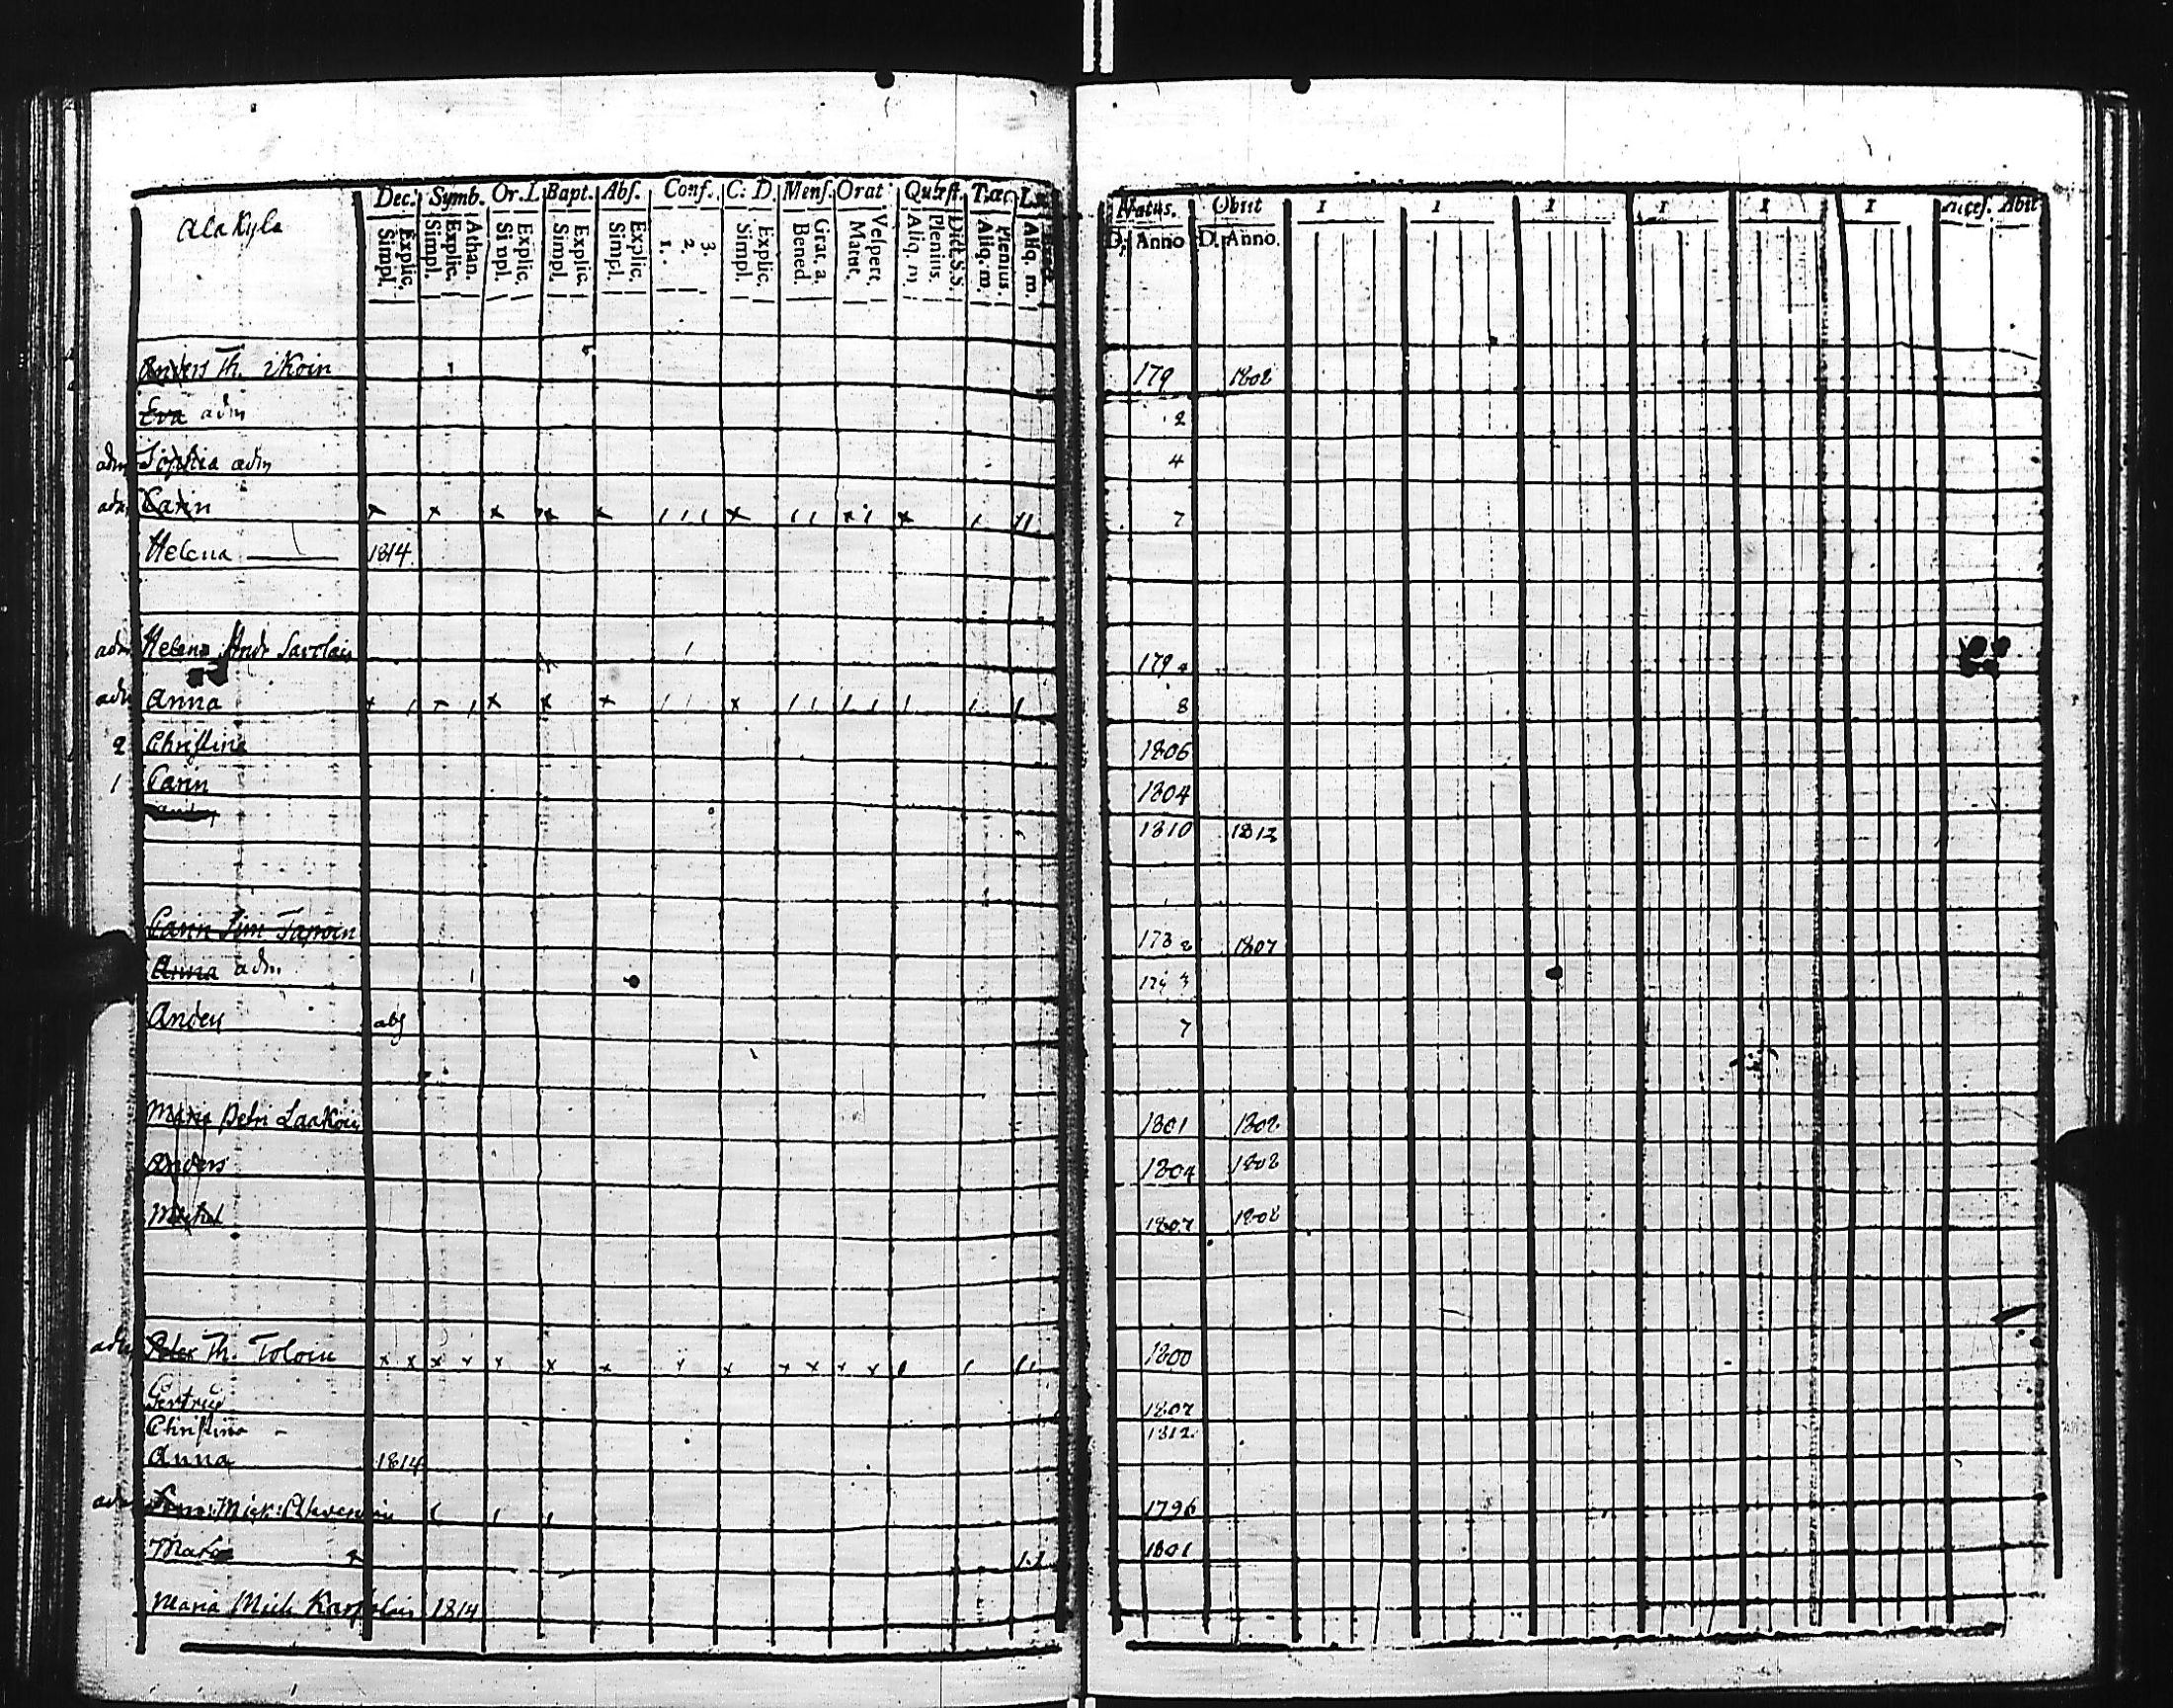 Alakylä
Dec. Symb. Or. L. Bapt. Abs. Conf. C. D. Mens. Orat Quæst. Tac.
Explic. Simpl. Athan. Explic. Simpl. Explic. Simpl. Explic. Simpl. Explic. Simpl. 3. 2. 1. Explic. Simpl. Grat. a. Bened. Vespert. Matut. Dict. S.S. Plenius. Aliq. m. Plenius. Aliq. m. Aliq. m.
Natus. Obiit I I I I I I Abit
D. Anno D. Anno.
Anders Th. Ikoin 179 1808
Eva adm 2
adm Sophia adm 4
adm Carin x x x x x 1 1 1 x 1 1 x 1 x 1 11 7
Helena 1814
adm Helena Andr 1 179
adm Anna x 1 x 1 x x x 1 1 x 1 1 1 1 1 1 1 8
2 Christina 1806
1 Carin 1804
1810 1812
Carin Sim Tapoin 1807
Anna adm
Anders abs 7
Maria Petri Laakoin 1801 1808
Anders 1804 1808
Michel 1807 1808
adm Peter Th. Toloin x x x x x x x x x x x x x 1 1 11 1800
Gertrud 1807
Christina 1812
Anna 1814
adm Mich: 1 1 1 1796
1.1 1801
Maria Mich 1814